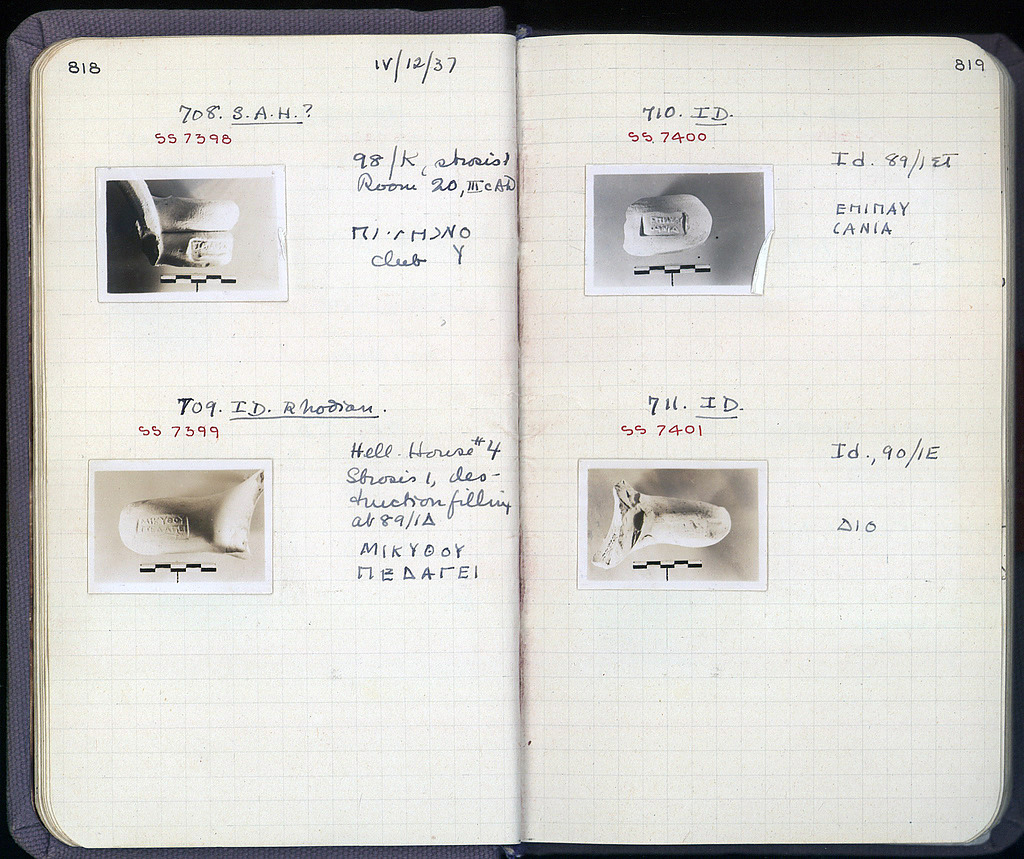 818
IV/12/37
708. S.A.H.?
SS 7398
98/K, strosis 1
Room 20, III c AD
club Υ
709. ID. Rhodian.
SS 7399
Hell. House #4
Strosis 1, des-
truction filling
at 89/ΙΔ
ΜΙΚΥΘΟΥ
ΠΕΔΑΓΕΙ
819
710. ID.
SS 7400
Id. 89/ΙΣΤ
ΕΠΙΠΑΥ
CΑΝΙΑ
711. ID.
SS 7401
Id., 90/ΙΕ
ΔΙΟ